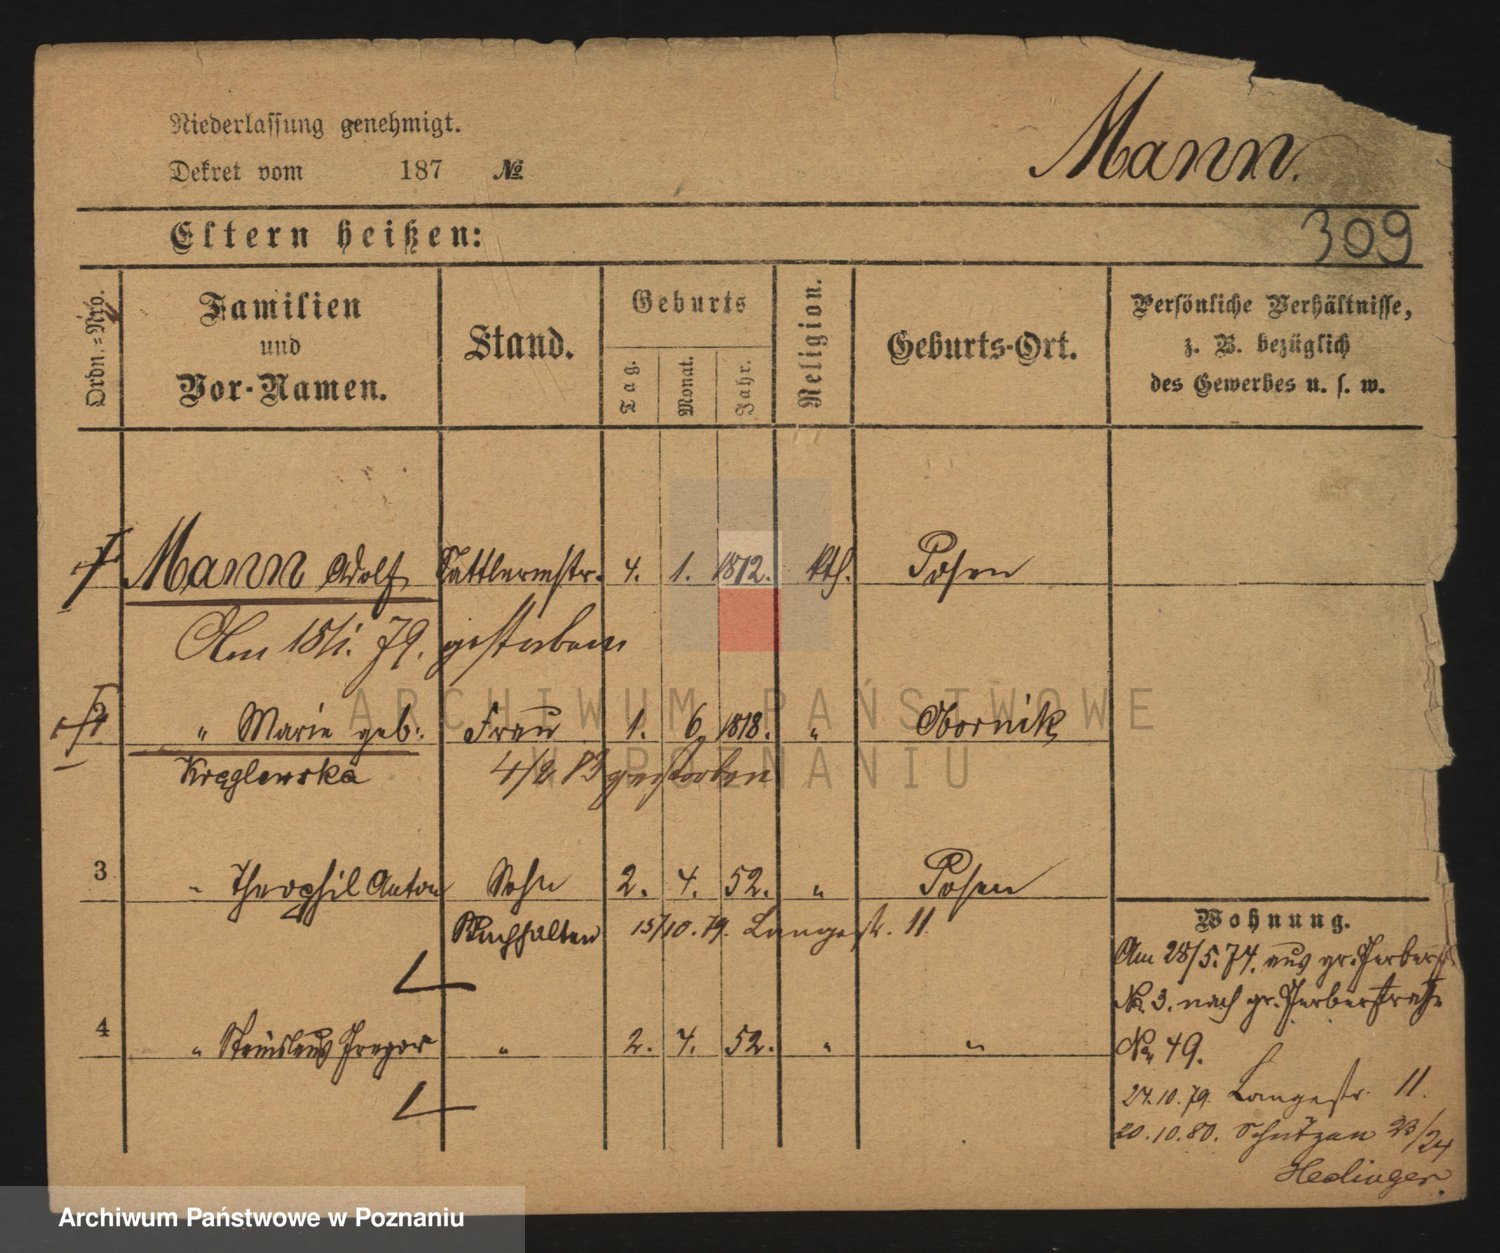 Niederlassung genehmigt.
Dekret vom 187 №
Mann.
309
Eltern heißen:
Ordn.=Nro.
Familien
und
Vor-Namen.
Stand.
Geburts
Tag.
Monat.
Jahr.
Religion.
Geburts-Ort.
Persönliche Verhältnisse,
z. B. bezüglich
des Gewerbes u. s. w.
Mann Adolf Sattlermstr. 4. 1. 1812. kth. Posen
Am 15/1. 79. gestorben
2 " Marie geb: Frau 1. 6. 1818. " Obornik
Kręglewska 4/2 83 gestorben
3 " Theophil Anton Sohn 2. 4. 52. " Posen
Buchhalter 15/10. 79. Langestr. 11.
4 " Stanislaus Gregor " 2. 4. 52. " "
Wohnung.
Am 28/5. 74. aus gr. Gerberstr
No 3. nach gr. Gerberstraße
No 49.
27.10.79. Langestr. 11.
20.10.80. Schützen 23/24
Hedinger.
ARCHIWUM PAŃSTWOWE
W POZNANIU
Archiwum Państwowe w Poznaniu